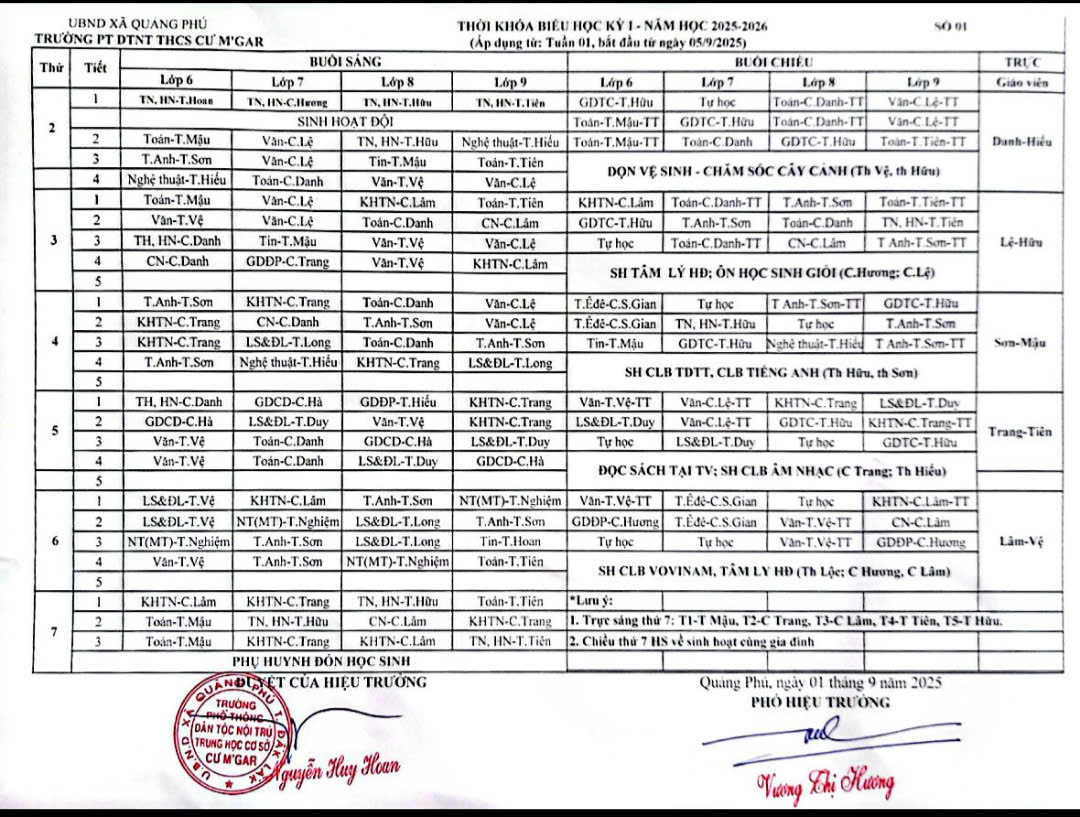 UBND XÃ QUẢNG PHÚ
THỜI KHÓA BIỂU HỌC KỲ I - NĂM HỌC 2025-2026
SỐ 01
TRƯỜNG PT DTNT THCS CƯ M'GAR
(Áp dụng từ: Tuần 01, bắt đầu từ ngày 05/9/2025)
Thứ Tiết BUỔI SÁNG BUỔI CHIỀU TRỰC
Lớp 6 Lớp 7 Lớp 8 Lớp 9 Lớp 6 Lớp 7 Lớp 8 Lớp 9 Giáo viên
2
1 TN, HN-T.Hoan TN, HN-C.Hương TN, HN-T.Hữu TN, HN-T.Tiên GDTC-T.Hữu Tự học Toán-C.Danh-TT Văn-C.Lệ-TT
SINH HOẠT ĐỘI Toán-T.Mậu-TT GDTC-T.Hữu Toán-C.Danh-TT Văn-C.Lệ-TT
2 Toán-T.Mậu Văn-C.Lệ TN, HN-T.Hữu Nghệ thuật-T.Hiếu Toán-T.Mậu-TT Toán-C.Danh GDTC-T.Hữu Toán-T.Tiên-TT Danh-Hiếu
3 T.Anh-T.Sơn Văn-C.Lệ Tin-T.Mậu Toán-T.Tiên
DỌN VỆ SINH - CHĂM SÓC CÂY CẢNH (Th Vệ, th Hữu)
4 Nghệ thuật-T.Hiếu Toán-C.Danh Văn-T.Vệ Văn-C.Lệ
3
1 Toán-T.Mậu Văn-C.Lệ KHTN-C.Lâm Toán-T.Tiên KHTN-C.Lâm Toán-C.Danh-TT T.Anh-T.Sơn Toán-T.Tiên-TT
2 Văn-T.Vệ Văn-C.Lệ Toán-C.Danh CN-C.Lâm GDTC-T.Hữu T.Anh-T.Sơn Toán-C.Danh TN, HN-T.Tiên
3 TH, HN-C.Danh Tin-T.Mậu Văn-T.Vệ Văn-C.Lệ Tự học Toán-C.Danh-TT CN-C.Lâm T Anh-T.Sơn-TT Lệ-Hữu
4 CN-C.Danh GDĐP-C.Trang Văn-T.Vệ KHTN-C.Lâm
SH TÂM LÝ HĐ; ÔN HỌC SINH GIỎI (C.Hương; C.Lệ)
5
4
1 T.Anh-T.Sơn KHTN-C.Trang Toán-C.Danh Văn-C.Lệ T.Êđê-C.S.Gian Tự học T Anh-T.Sơn-TT GDTC-T.Hữu
2 KHTN-C.Trang CN-C.Danh T.Anh-T.Sơn Văn-C.Lệ T.Êđê-C.S.Gian TN, HN-T.Hữu Tự học T.Anh-T.Sơn
3 KHTN-C.Trang LS&ĐL-T.Long Toán-C.Danh T.Anh-T.Sơn Tin-T.Mậu GDTC-T.Hữu Nghệ thuật-T.Hiếu T Anh-T.Sơn-TT Sơn-Mậu
4 T.Anh-T.Sơn Nghệ thuật-T.Hiếu KHTN-C.Trang LS&ĐL-T.Long
SH CLB TDTT, CLB TIẾNG ANH (Th Hữu, th Sơn)
5
5
1 TH, HN-C.Danh GDCD-C.Hà GDĐP-T.Hiếu KHTN-C.Trang Văn-T.Vệ-TT Văn-C.Lệ-TT KHTN-C.Trang LS&ĐL-T.Duy
2 GDCD-C.Hà LS&ĐL-T.Duy Văn-T.Vệ KHTN-C.Trang LS&ĐL-T.Duy Văn-C.Lệ-TT GDTC-T.Hữu KHTN-C.Trang-TT Trang-Tiên
3 Văn-T.Vệ Toán-C.Danh GDCD-C.Hà LS&ĐL-T.Duy Tự học LS&ĐL-T.Duy Tự học GDTC-T.Hữu
4 Văn-T.Vệ Toán-C.Danh LS&ĐL-T.Duy GDCD-C.Hà
ĐỌC SÁCH TẠI TV; SH CLB ÂM NHẠC (C Trang; Th Hiếu)
5
6
1 LS&ĐL-T.Vệ KHTN-C.Lâm T.Anh-T.Sơn NT(MT)-T.Nghiệm Văn-T.Vệ-TT T.Êđê-C.S.Gian Tự học KHTN-C.Lâm-TT
2 LS&ĐL-T.Vệ NT(MT)-T.Nghiệm LS&ĐL-T.Long T.Anh-T.Sơn GDĐP-C.Hương T.Êđê-C.S.Gian Văn-T.Vệ-TT CN-C.Lâm
3 NT(MT)-T.Nghiệm T.Anh-T.Sơn LS&ĐL-T.Long Tin-T.Hoan Tự học Tự học Văn-T.Vệ-TT GDĐP-C.Hương Lâm-Vệ
4 Văn-T.Vệ T.Anh-T.Sơn NT(MT)-T.Nghiệm Toán-T.Tiên
SH CLB VOVINAM, TÂM LY HĐ (Th Lộc; C Hương, C Lâm)
5
7
1 KHTN-C.Lâm KHTN-C.Trang TN, HN-T.Hữu Toán-T.Tiên *Lưu ý:
2 Toán-T.Mậu TN, HN-T.Hữu CN-C.Lâm KHTN-C.Trang 1. Trực sáng thứ 7: T1-T Mậu, T2-C Trang, T3-C Lâm, T4-T Tiên, T5-T Hữu.
3 Toán-T.Mậu KHTN-C.Trang KHTN-C.Lâm TN, HN-T.Tiên 2. Chiều thứ 7 HS về sinh hoạt cùng gia đình
PHỤ HUYNH ĐÓN HỌC SINH
DUYỆT CỦA HIỆU TRƯỞNG
Quảng Phú, ngày 01 tháng 9 năm 2025
PHÓ HIỆU TRƯỞNG
U.B.N.D XÃ QUẢNG PHÚ T. ĐẮK LẮK
TRƯỜNG
PHỔ THÔNG
DÂN TỘC NỘI TRÚ
TRUNG HỌC CƠ SỞ
CƯ M'GAR
Nguyễn Huy Hoan
Vương Thị Hương